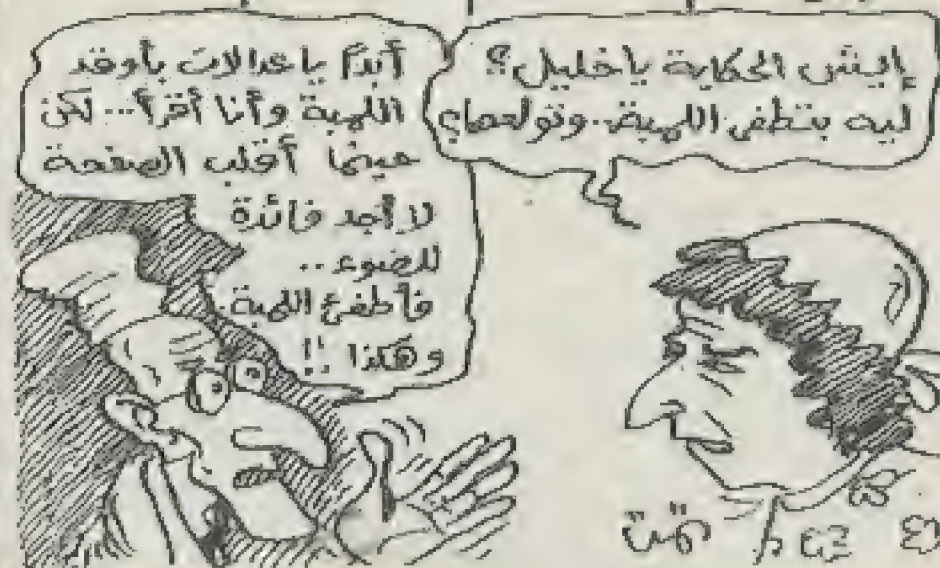 إيش الحكاية ياخليل؟
ليه بتطفى اللمبة.. وتولعها؟
أبدًا ياعدالات بأوقد
اللمبة وأنا أقرأ... لكن
حينما أقلب الصفحة
لا أجد فائدة
للضوء..
فأطفئ اللمبة
وهكذا !!
تمت